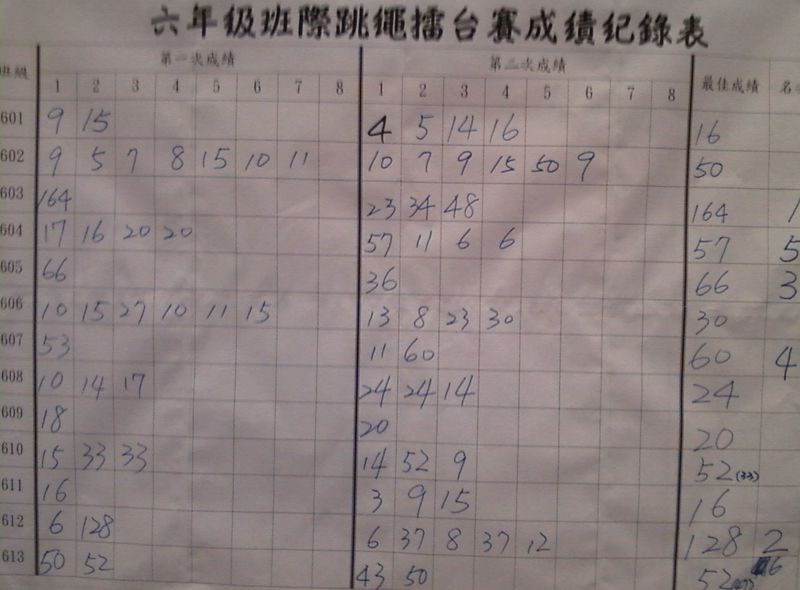 六年級班際跳繩擂台賽成績紀錄表
班級 第一次成績 第二次成績 最佳成績 名
1 2 3 4 5 6 7 8 1 2 3 4 5 6 7 8
601 9 15 4 5 14 16 16
602 9 5 7 8 15 10 11 10 7 9 15 50 9 50
603 164 23 34 48 164 1
604 17 16 20 20 57 11 6 6 57 5
605 66 36 66 3
606 10 15 27 10 11 15 13 8 23 30 30
607 53 11 60 60 4
608 10 14 17 24 24 14 24
609 18 20 20
610 15 33 33 14 52 9 52(33)
611 16 3 9 15 16
612 6 128 6 37 8 37 12 128 2
613 50 52 43 50 52 6